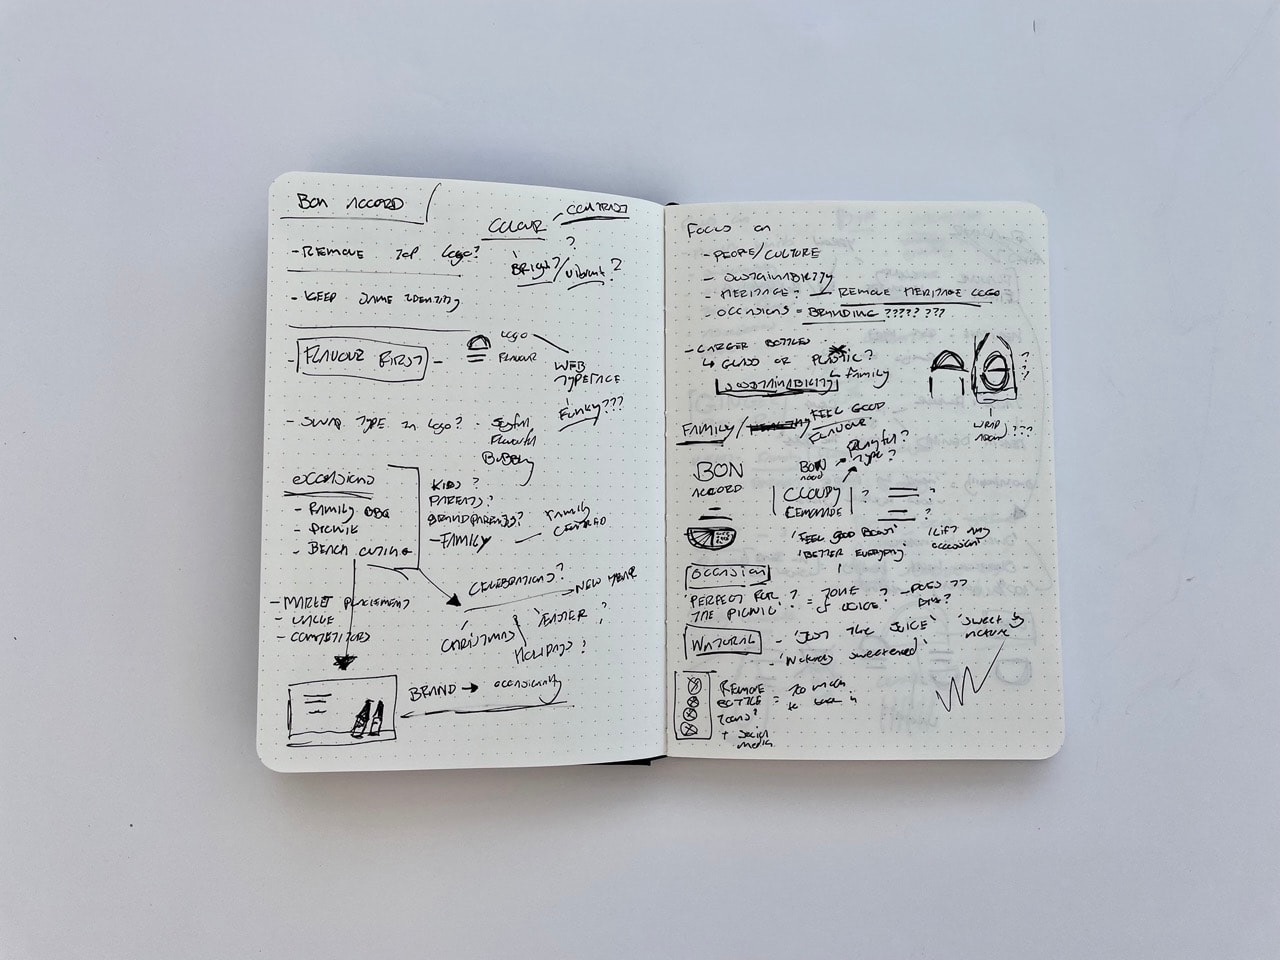 BON ACCORD
COLOUR - CONTRAST
- REMOVE TOP LOGO?
?
BRIGHT/VIBRANT?
- KEEP SAME IDENTITY
LOGO
- FLAVOUR FIRST -
FLAVOUR
WEB
TYPEFACE
FUNKY???
- SWAP TYPE IN LOGO?
Flavourful
BuBBly
OCCASIONS
- FAMILY BBQ
- PICNIC
- BEACH OUTING
KIDS?
PARENTS?
GRANDPARENTS?
- FAMILY - FAMILY
CENTRED
CELEBRATIONS?
NEW YEAR
CHRISTMAS
EASTER?
HOLIDAYS?
- MARKET PLACEMENT
- VALUE
- COMPETITORS
BRAND → occasionally
FOCUS ON
- PEOPLE/CULTURE
- SUSTAINABILITY
- HERITAGE? — REMOVE HERITAGE LOGO
- OCCASIONS = BRANDING ????? ???
- LARGER BOTTLES
↳ GLASS OR PLASTIC?
SUSTAINABILITY
↳ FAMILY
?
?
?
WRAP
???
FAMILY / FEEL GOOD
FLAVOUR.
BON
ACCORD
BON
PLAYFUL
TYPE?
CLOUDY
LEMONADE
?
?
?
'FEEL GOOD BOOST'
'BETTER EVERYDAY'
LIFT ANY
OCCASION
OCCASION
'PERFECT FOR
THE PICNIC'
? = TONE
OF VOICE? - DOES ??
NATURAL - 'JUST THE JUICE'
'SWEET BY
NATURE'
- 'Naturally sweetened'
REMOVE
BOTTLE = TO MUCH
ICONS?
+ Social
media